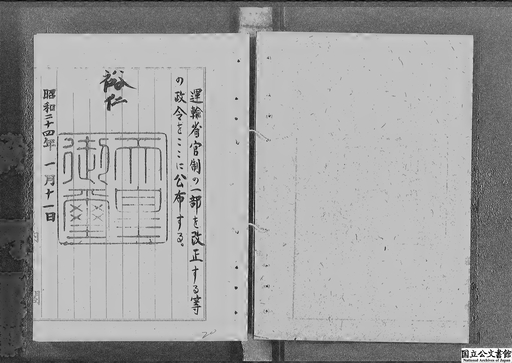 運輸省官制の一部を改正する等
の政令をここに公布する。
裕仁
天皇
御璽
昭和二十四年一月十一日
内閣
国立公文書館
National Archives of Japan